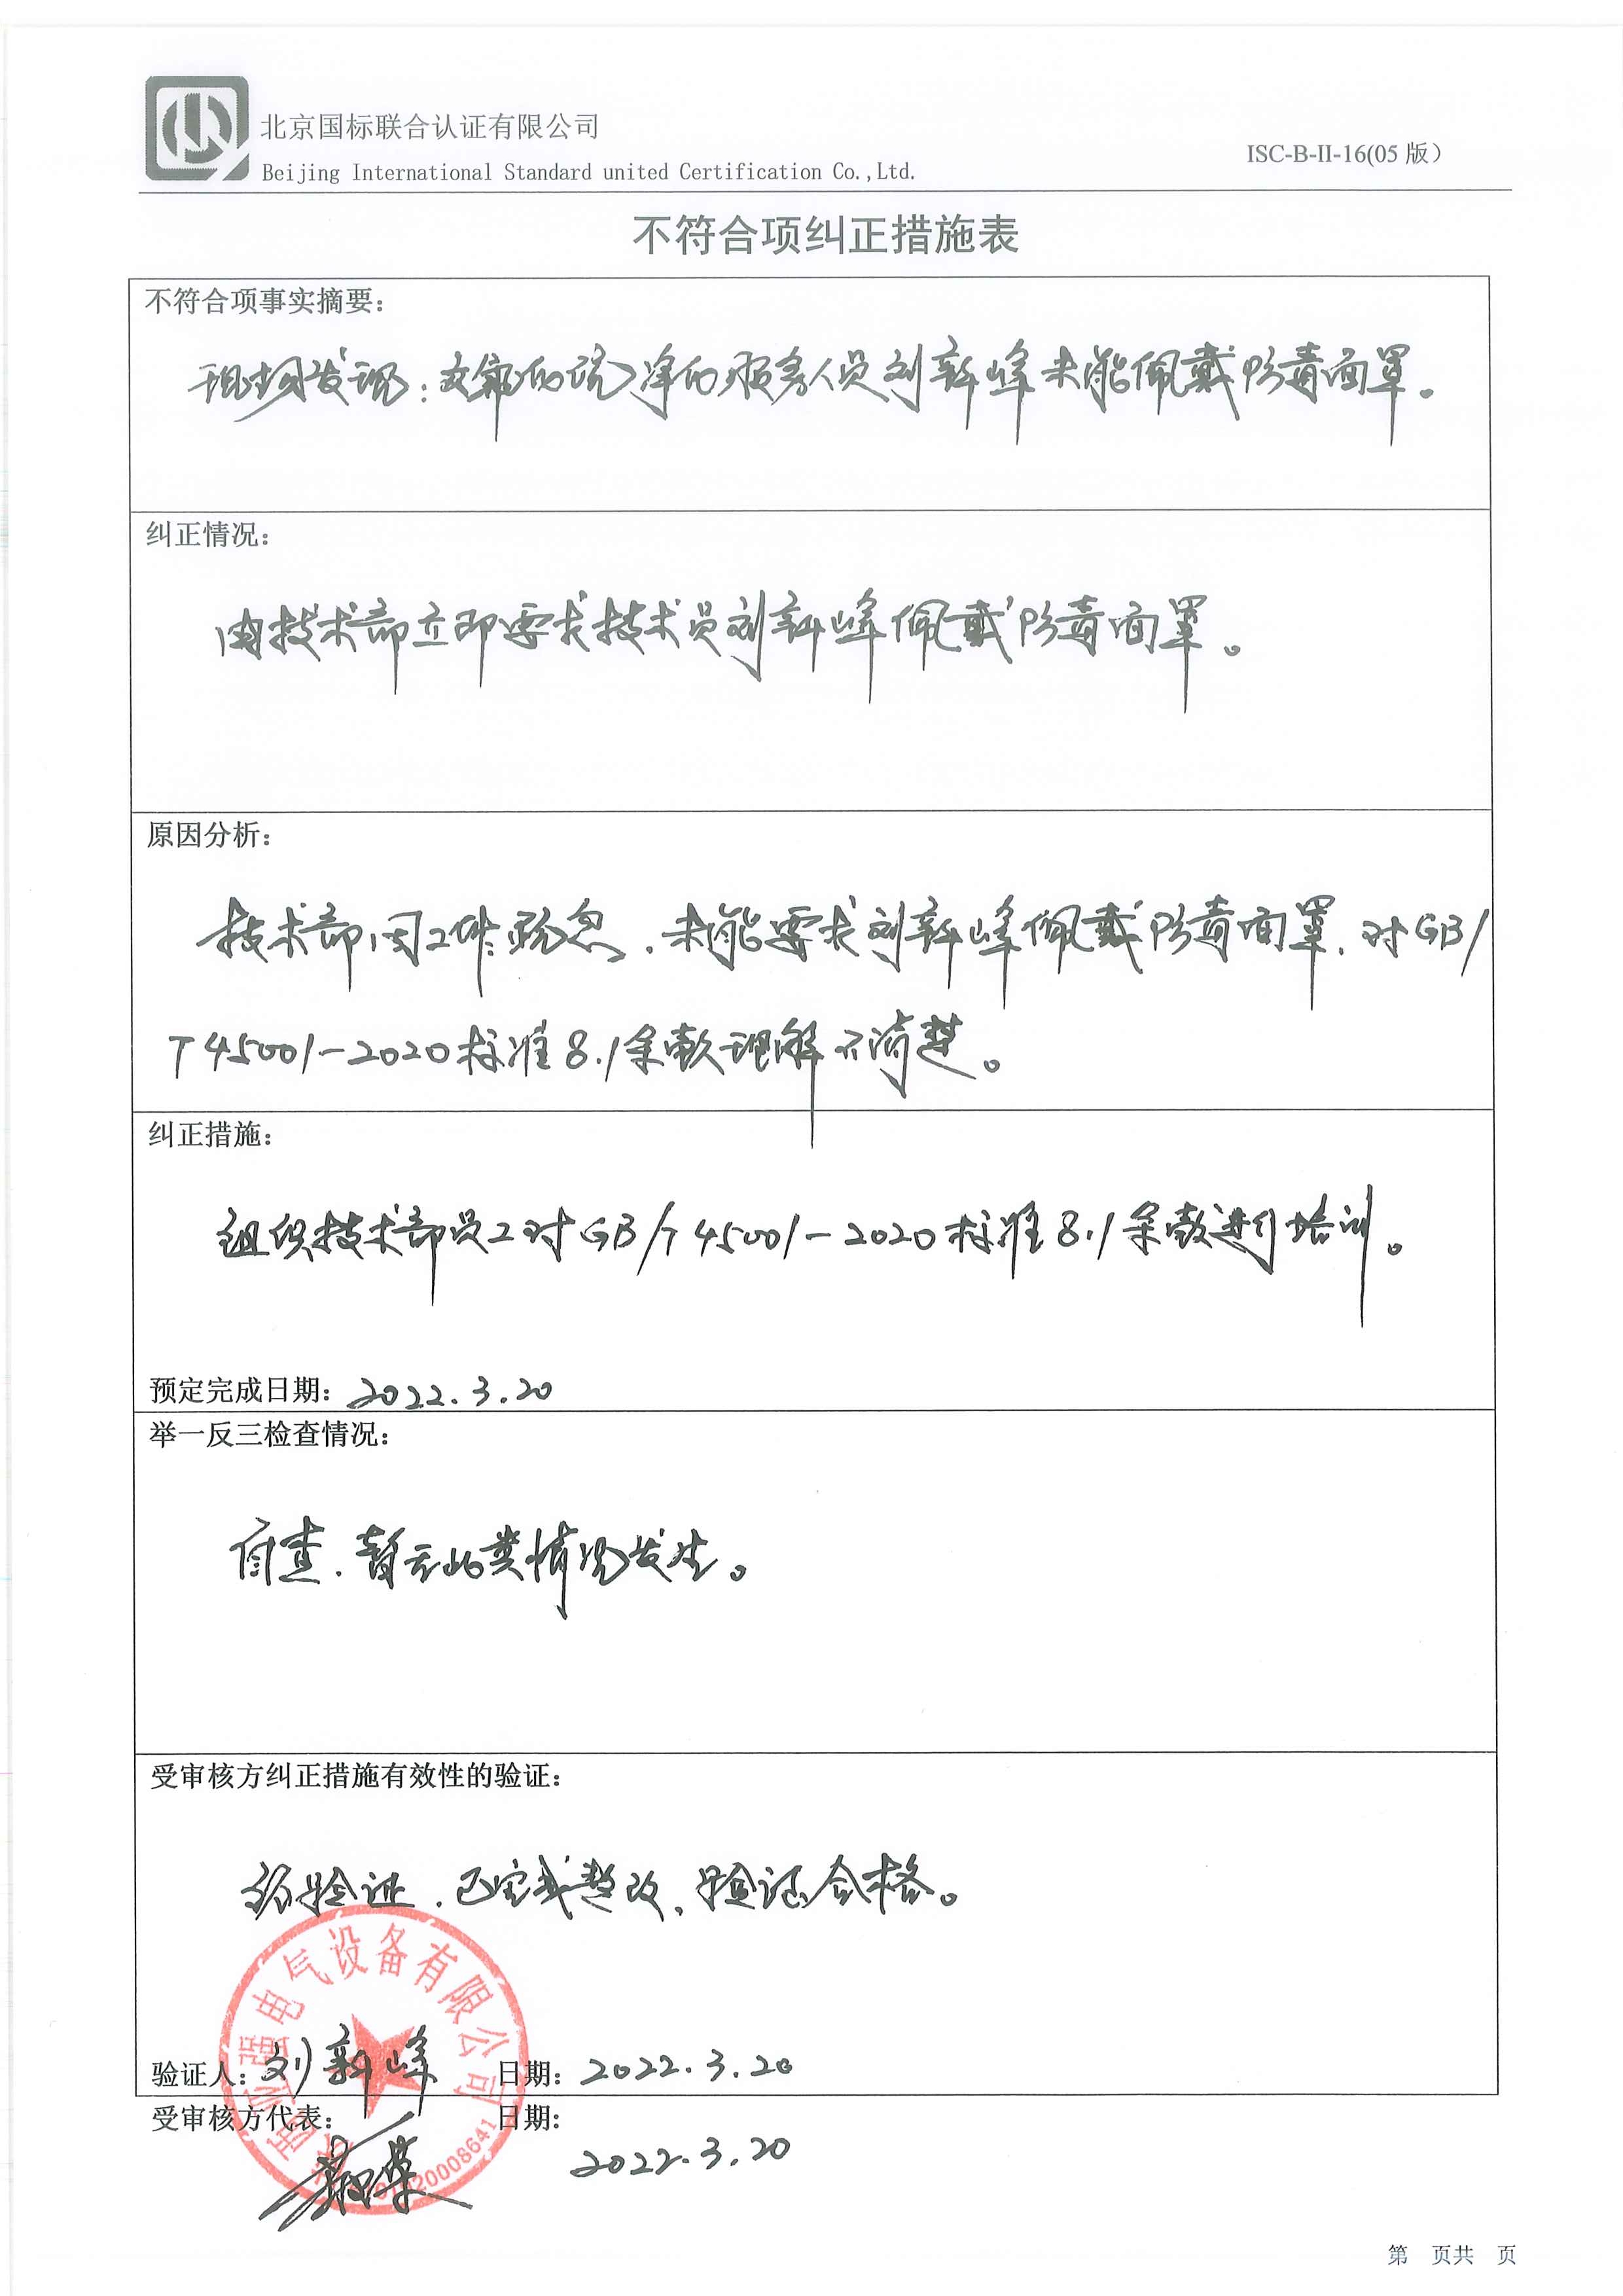 北京国标联合认证有限公司
Beijing International Standard united Certification Co.,Ltd.
ISC-B-II-16(05 版）
不符合项纠正措施表
不符合项事实摘要：
现场发现：的服务人员刘新峰未能佩戴防毒面罩。
纠正情况：
由技术部立即要求技术员刘新峰佩戴防毒面罩。
原因分析：
技术部因工作疏忽，未能要求刘新峰佩戴防毒面罩，对GB/
T 45001-2020标准8.1条款理解不清楚。
纠正措施：
组织技术部员工对GB/T 45001-2020标准8.1条款进行培训。
预定完成日期：2022.3.20
举一反三检查情况：
自查，暂无此类情况发生。
受审核方纠正措施有效性的验证：
经验证，已完成整改，验证合格。
强电气设备有限公司
验证人：刘新峰 日期：2022.3.20
受审核方代表： 日期：
2022.3.20
第 页共 页